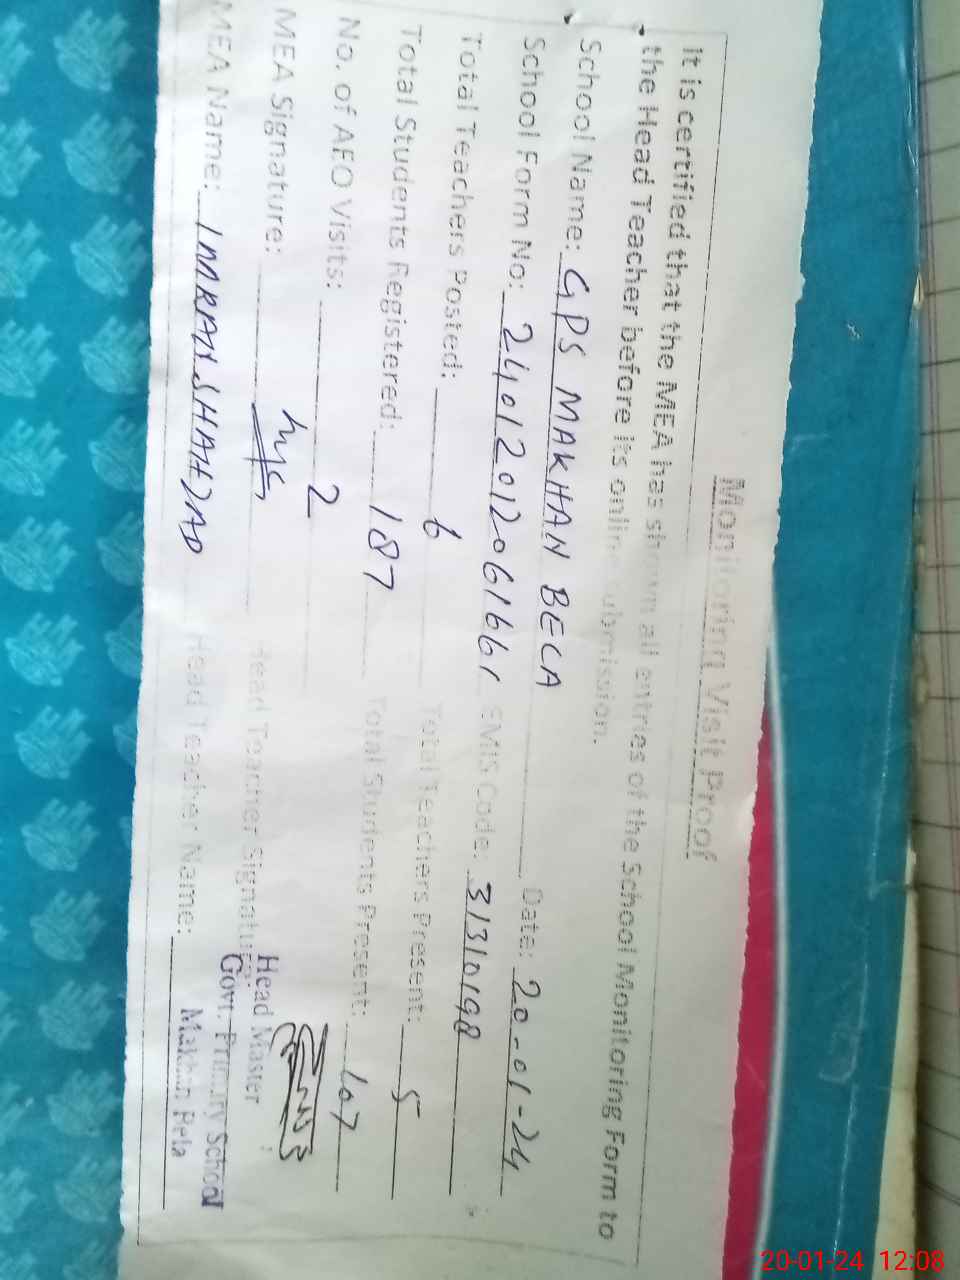 Monitoring Visit Proof
It is certified that the MEA has shown all entries of the School Monitoring Form to
the Head Teacher before its online submission.
School Name: GPS MAKHAN BELA Date: 20-01-24
School Form No: 2401201206166 EMIS Code: 31310198
Total Teachers Posted: 6 Total Teachers Present: 5
Total Students Registered: 187 Total Students Present: 107
No. of AEO Visits: 2
MEA Signature: Head Teacher Signature:
Head Master
Govt. Primary School
MEA Name: IMRAN SHAHZAD Head Teacher Name: Makhan Bela
20-01-24 12:08